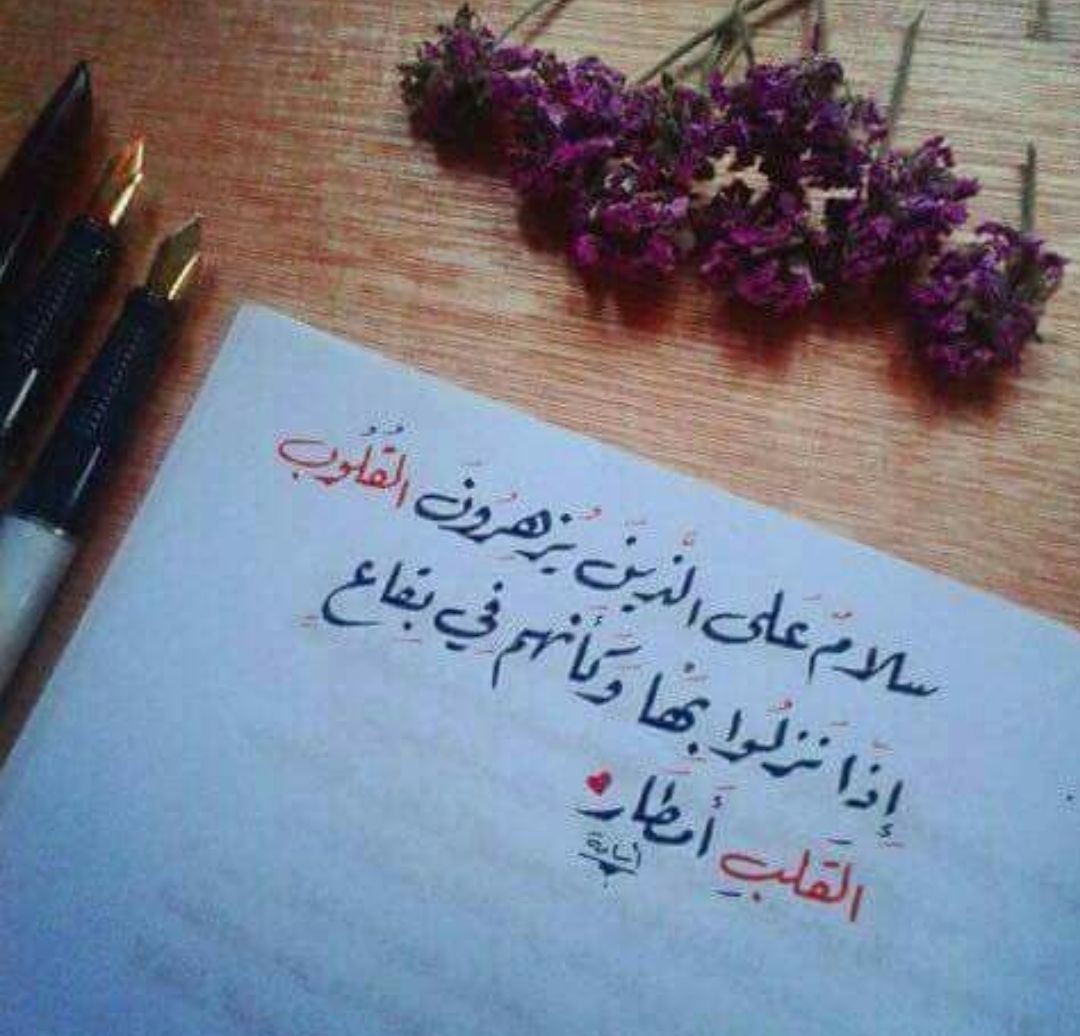 سلامٌ عَلى الَّذينَ يُزهِرُونَ القُلُوبَ
إِذَا نَزلُوا بِهْا وَكَأَنهم في بِقاعِ
القَلبِ أَمطَار